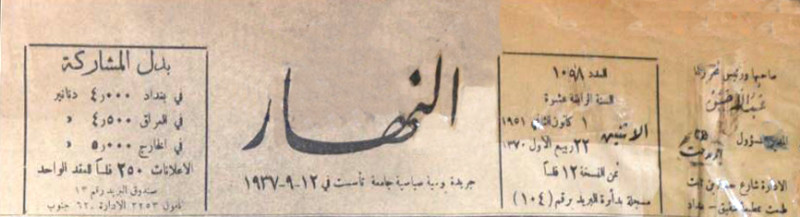 صاحبها ورئيس تحريرها
عبدالله حسن
المدير المسؤول
الادارة شارع
طبعت بمطبعة
العدد ١٠٥٨
السنة الرابعة عشرة
الاثنين
١ كانون الثاني ١٩٥١
٢٢ ربيع الاول ١٣٧٠
ثمن النسخة ١٢ فلساً
مسجلة بدائرة البريد برقم (١٠٤)
النهار
جريدة يومية سياسية جامعة تأسست في ١٢-٩-١٩٣٧
بدل المشاركة
في بغداد ٤٫٠٠٠ دنانير
في العراق ٤٫٥٠٠ »
في الخارج ٥٫٠٠٠ »
الاعلانات ٢٥٠ فلساً للعقد الواحد
صندوق البريد رقم ١٣
تلفون ٣٢٥٣ الادارة ٦٢٠ جنوب